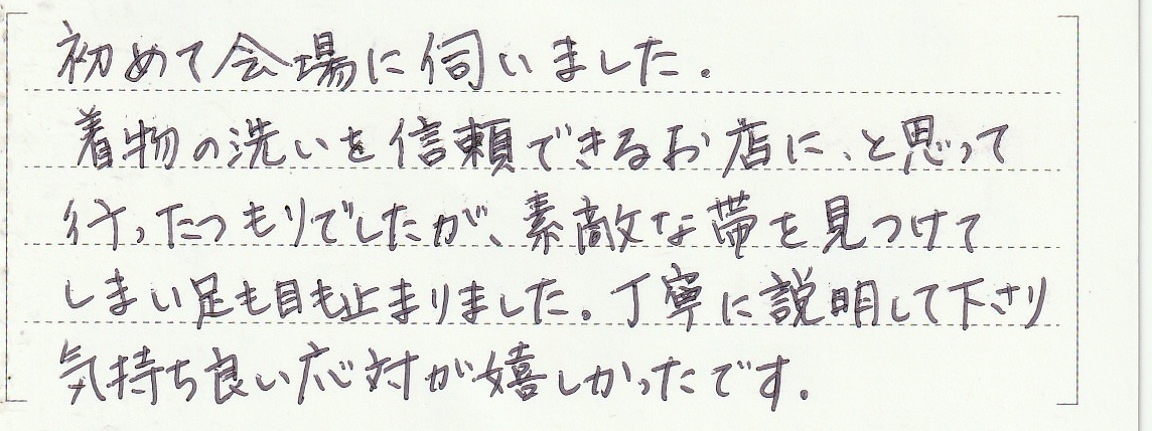 初めて会場に伺いました.
着物の洗いを信頼できるお店に、と思って
行ったつもりでしたが、素敵な帯を見つけて
しまい足も目も止まりました。丁寧に説明して下さり
気持ち良い応対が嬉しかったです.